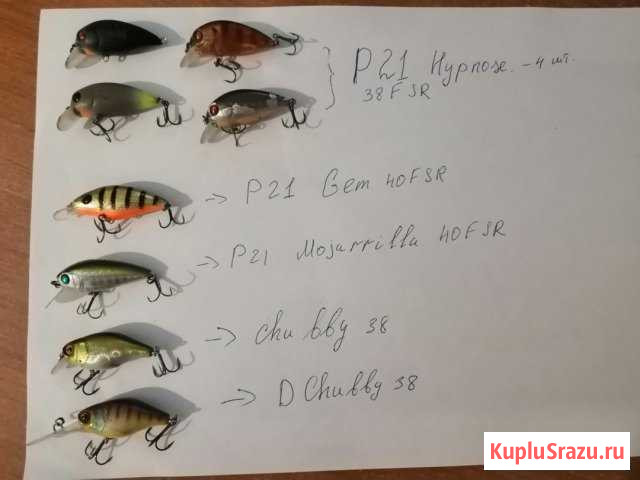 P21 Hypnose. - 4 шт.
38FSR
P21 Gem 40FSR
P21 Mojarrilla 40FSR
Chubby 38
D Chubby 38
KupluSrazu.ru